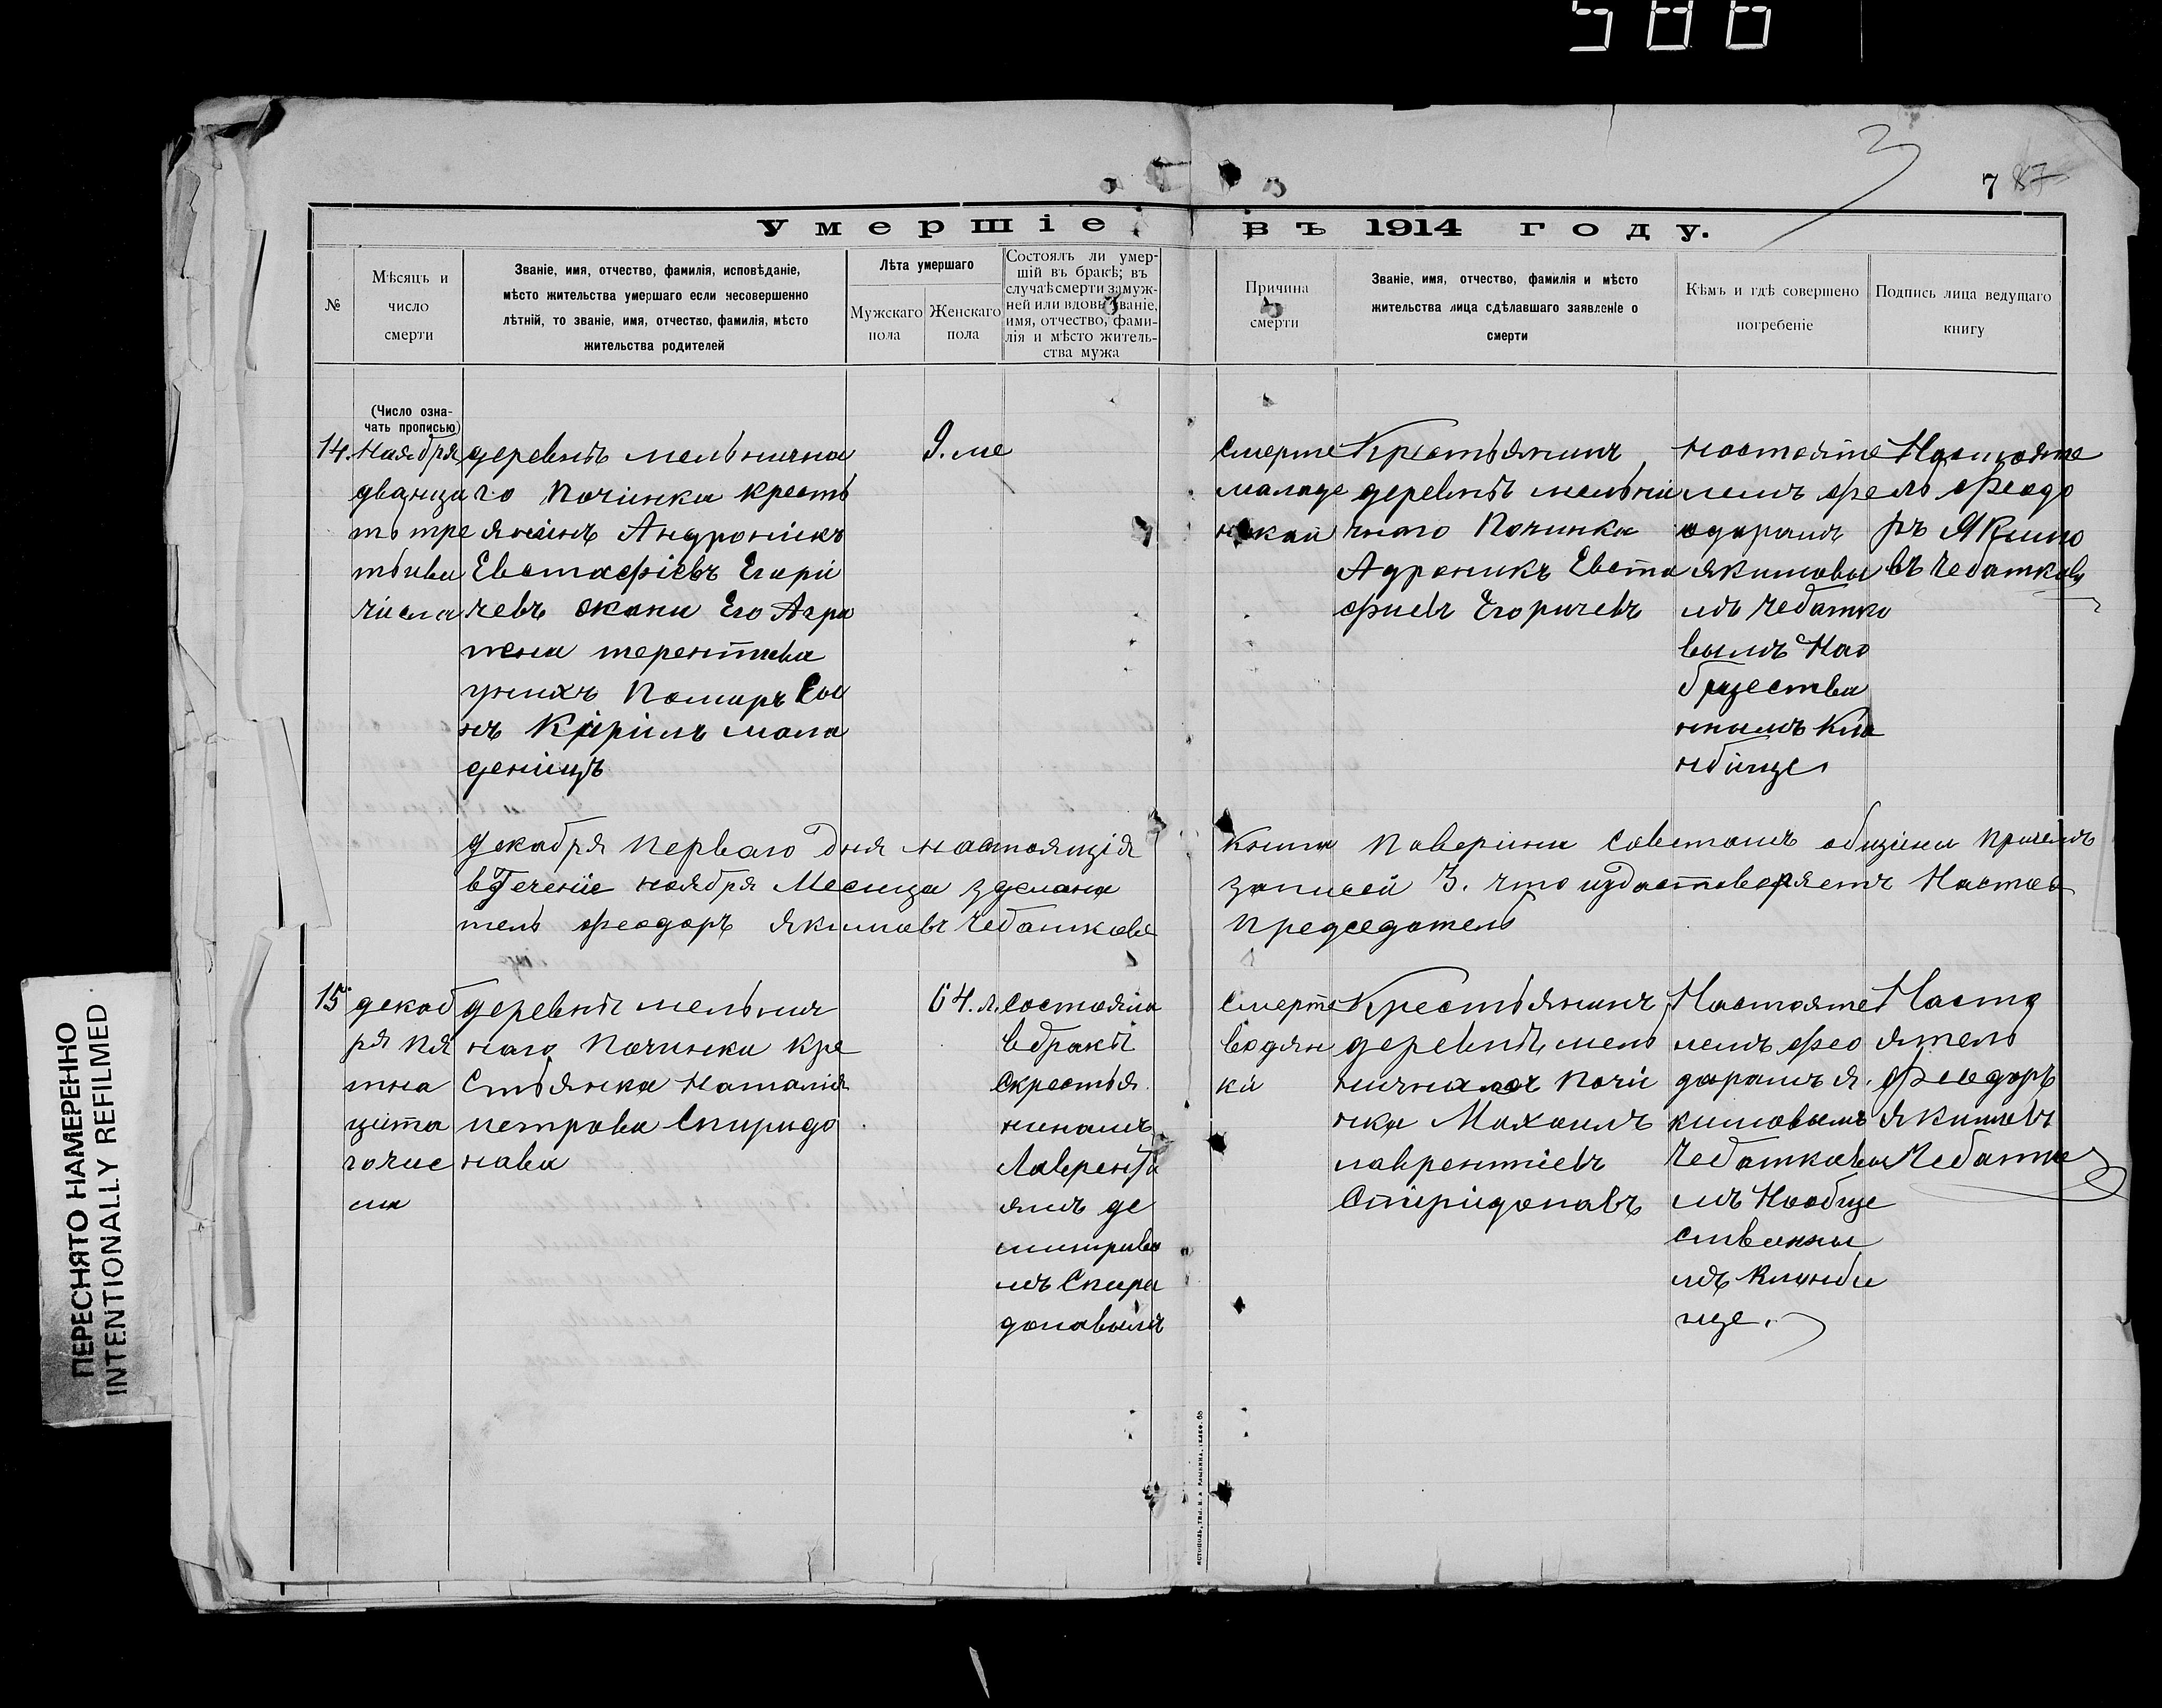 586
3
7 87
Умершіе въ 1914 году.
№
Мѣсяцъ и
число
смерти
Званіе, имя, отчество, фамилія, исповѣданіе,
мѣсто жительства умершаго если несовершенно
лѣтній, то званіе, имя, отчество, фамилія, мѣсто
жительства родителей
Лѣта умершаго
Мужскаго
пола
Женскаго
пола
Состоялъ ли умер-
шій въ бракѣ; въ
случаѣ смерти замуж-
ней или вдовы званіе,
имя, отчество, фами-
лія и мѣсто житель-
ства мужа
Причина
смерти
Званіе, имя, отчество, фамилія и мѣсто
жительства лица сдѣлавшаго заявленіе о
смерти
Кѣмъ и гдѣ совершено
погребеніе
Подпись лица ведущаго
книгу
(Число озна-
чать прописью)
14.
Наября
дванца
ть тре
тьива
числа
деревнѣ мельнична
го Починка кресть
янинъ Андроникъ
Евстафіевъ Егари
чевъ жана Его Агра
пена терентива
умихъ Помиръ Сы
нъ Кирилъ мала
деницъ
9. ме
Смерте
маладе
нской
Крестьянинъ
деревнѣ мельни
чнаго Починка
Адроникъ Евста
фиевъ Егоричевъ
настояте
лемъ фе
одорамъ
якимовы
мъ Чебатко
вымъ Нао
бщества
нымъ Кла
дбище
Настояте
ль Феодо
ръ Якимо
въ Чебатковъ
Декабря Перваго Дня настоящія Книга Паверина Саветомъ общины Причемъ
вТеченіе ноября Месеца зделана записей 3. что удастоверяетъ Настоя
тель феодоръ якимавъ Чебатковъ Председатель
15.
декаб
ря Пя
тна
цата
гочис
ла
деревнѣ мельнич
наго Починка Кре
стьянка Наталія
петрова Спиридо
нава
64. л.
Состояла
вбракѣ
Скрестья
нинамъ
Лаврентӏ
ямъ де
митрива
мъ Спири
донавымъ
Смерте
водян
ки
Крестьянинъ
деревнѣ мель
нична
Почи
нка Михаилъ
лаврентиевъ
Спиридонавъ
Настояте
лемъ фео
дорамъ я.
кимовымъ
Чебаткавы
мъ Наобще
ственны
мъ кладби
ще.
Насто
ятель
Феодоръ
якимавъ
Чебатко
ПЕРЕСНЯТО НАМЕРЕННО
INTENTIONALLY REFILMED